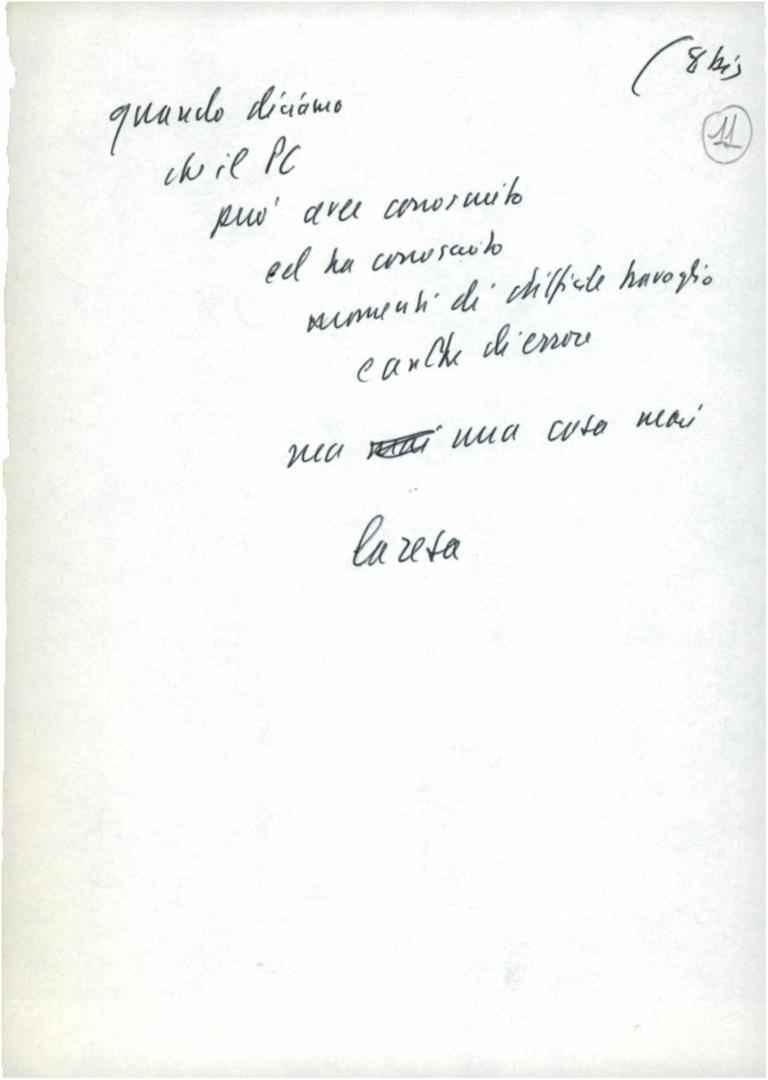 (8 bis
11
quando diciamo
che il PC
può aver conosciuto
ed ha conosciuto
momenti di difficile travaglio
e anche di errore
ma mai una cosa mai
la resa